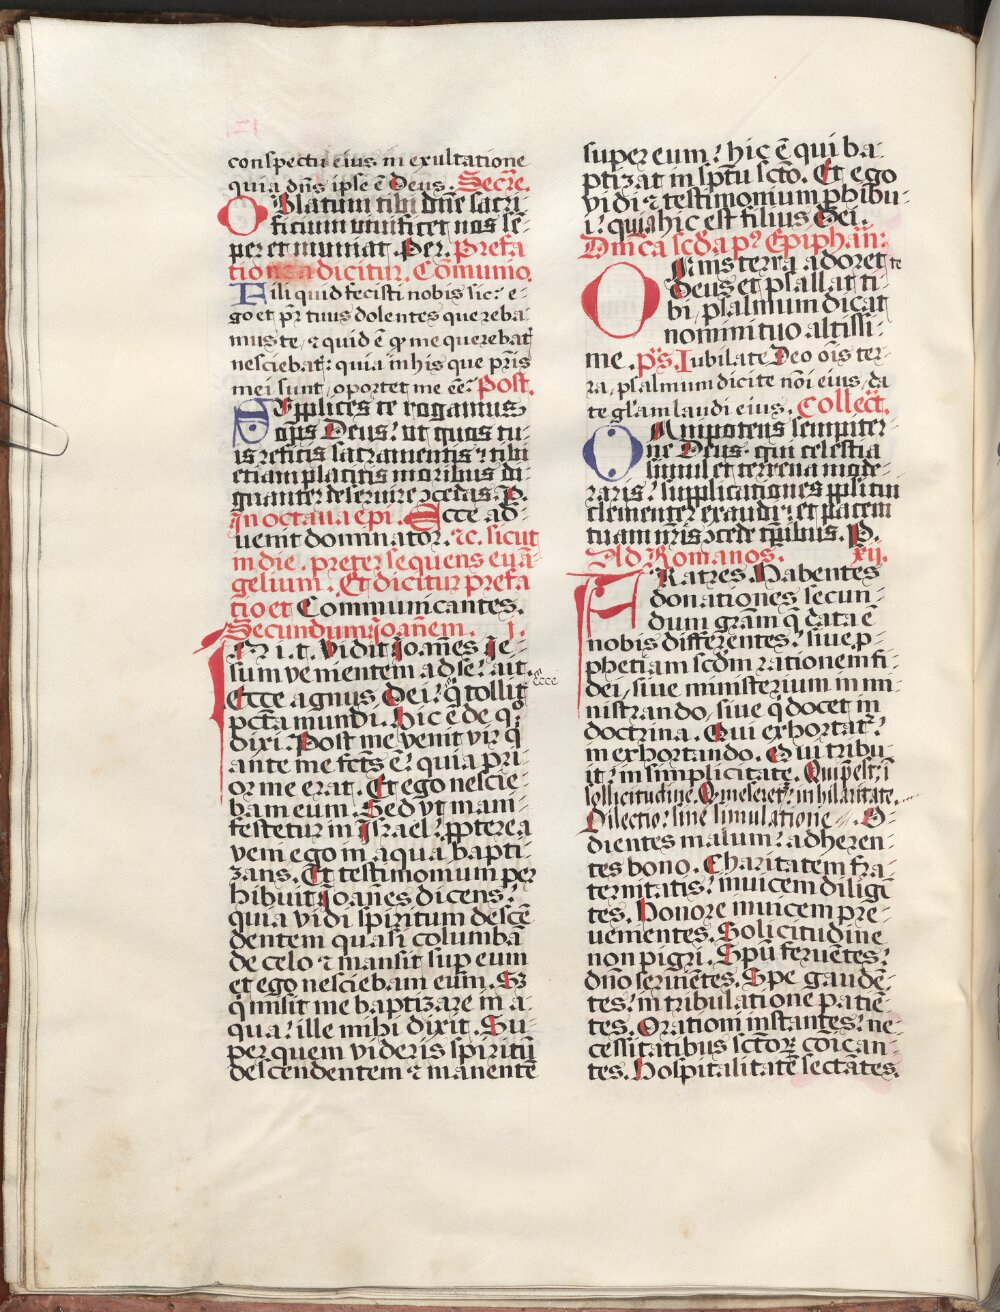 conspectu eius in exultatione
quia dñs ipse ẽ Deus. Secre.
Oblatum tibi dñe sacri-
ficium vivificet nos sẽ-
per et muniat. Per. Prefa
tio dicitur. Cõmunio.
Fili quid fecisti nobis sic? e-
go et pr̃ tuus dolentes quereba-
mus te, ⁊ quid ẽ qͥ me querebat
nesciebat̃? quia in his que pr̃is
mei sunt, oportet me eẽ. Post.
Supplices te rogamus
oр̃s Deus: ut quos tu-
is reficis sacramentis ⁊ tibi
etiam placitis moribus di-
gnanter deservire ↄcedas. P.
In octava epi. Ecce ad-
venit dominator. ⁊c. sicut
in die. preter sequens evã-
gelium. Et dicitur prefa
tio et Communicantes.
Secundum Joañem. j.
IN i. t. vidit Joañes Je-
sum venientem ad se: ait.
ecce
Ecce agnus Dei: q̃ tollit
pctã mundi. Hic ẽ de q°
dixi. Post me venit vir q̃
ante me fctũs ẽ: quia pri-
or me erat. Et ego nescie-
bam eum. Sed vt mani-
festetur in Israel: ꝓpterea
veni ego in aqua bapti-
zans. Et testimonium per
hibuit Joañes dicens:
quia vidi spiritum descẽ-
dentem quasi columbã
de celo ⁊ mansit sup eum
et ego nesciebam eum. Sꝫ
q̃ misit me baptizare in a-
qua: ille mihi dixit. Su-
per quem videris spiritũ
descendentem ⁊ manentẽ
super eum: hic ẽ qui ba-
ptizat in sp̃tu scto. Et ego
vidi ⁊ testimonium phibu-
i: quia hic est filius Dei.
Dm̃ca scd̃a pꝰ Epiphañ:
OMnis terra adoret te
Deus et psallat ti-
bi, psalmum dicat
nomini tuo altissi-
me. p̃s. Iubilate Deo oĩs ter-
ra, psalmum dicite noĩ eius, da
te glãm laudi eius. Collect.
OMnipotens sempiter-
ne Deus: qui celestia
simul et terrena mode-
raris: supplicationes ppli tui
clementer exaudi: et pacem
tuam nr̃is ↄcede tp̃ibus. P.
Ad Romanos. xij.
FRatres. Habentes
donationes secun-
dum grãm q̃ data ẽ
nobis differentes: siue ꝓ-
phetiam scd̃m rationem fi-
dei, siue ministerium in mi-
nistrando, siue q̃ docet in
doctrina. Qui exhortat̃:
in exhortando. Qui tribu-
it: in simplicitate. Qui pest: ĩ
sollicitudine. Q̃ miseret̃: in hilaritate.
Dilectio: sine simulatione. O-
dientes malum: adheren-
tes bono. Charitatem fra-
ternitatis: inuicem diligẽ
tes. Honore inuicem pre-
uenientes. Solicitudine
non pigri. Spũ feruẽtes:
dño seruiẽtes. Spe gaudẽ-
tes: in tribulatione patiẽ-
tes. Orationi instantes: ne-
cessitatibus sctoꝝ cõican-
tes. Hospitalitatẽ sectãtes.